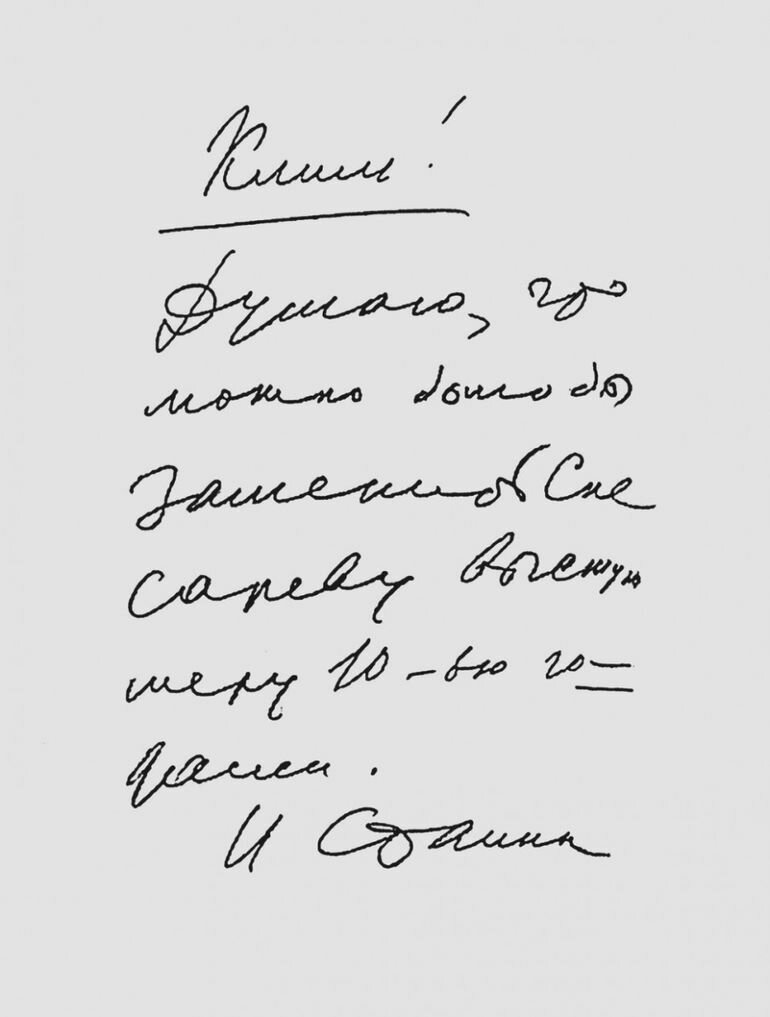 Клим!
Думаю, что
можно было бы
заменить Сле
сареву высшую
меру 10-ью го=
дами.
И Сталин